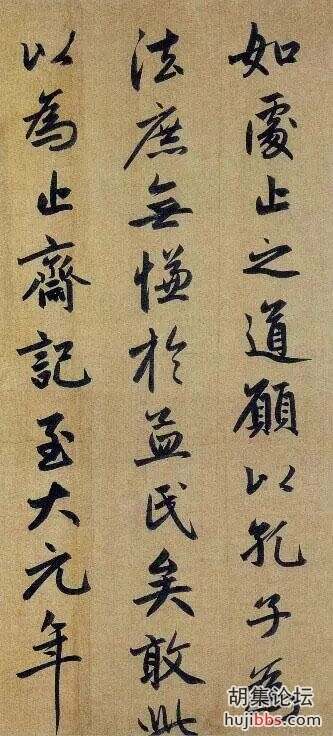 如處止之道願以孔子為
法庶無慊於益民矣敢此
以為止齋記至大元年
胡集论坛
hujibbs.com